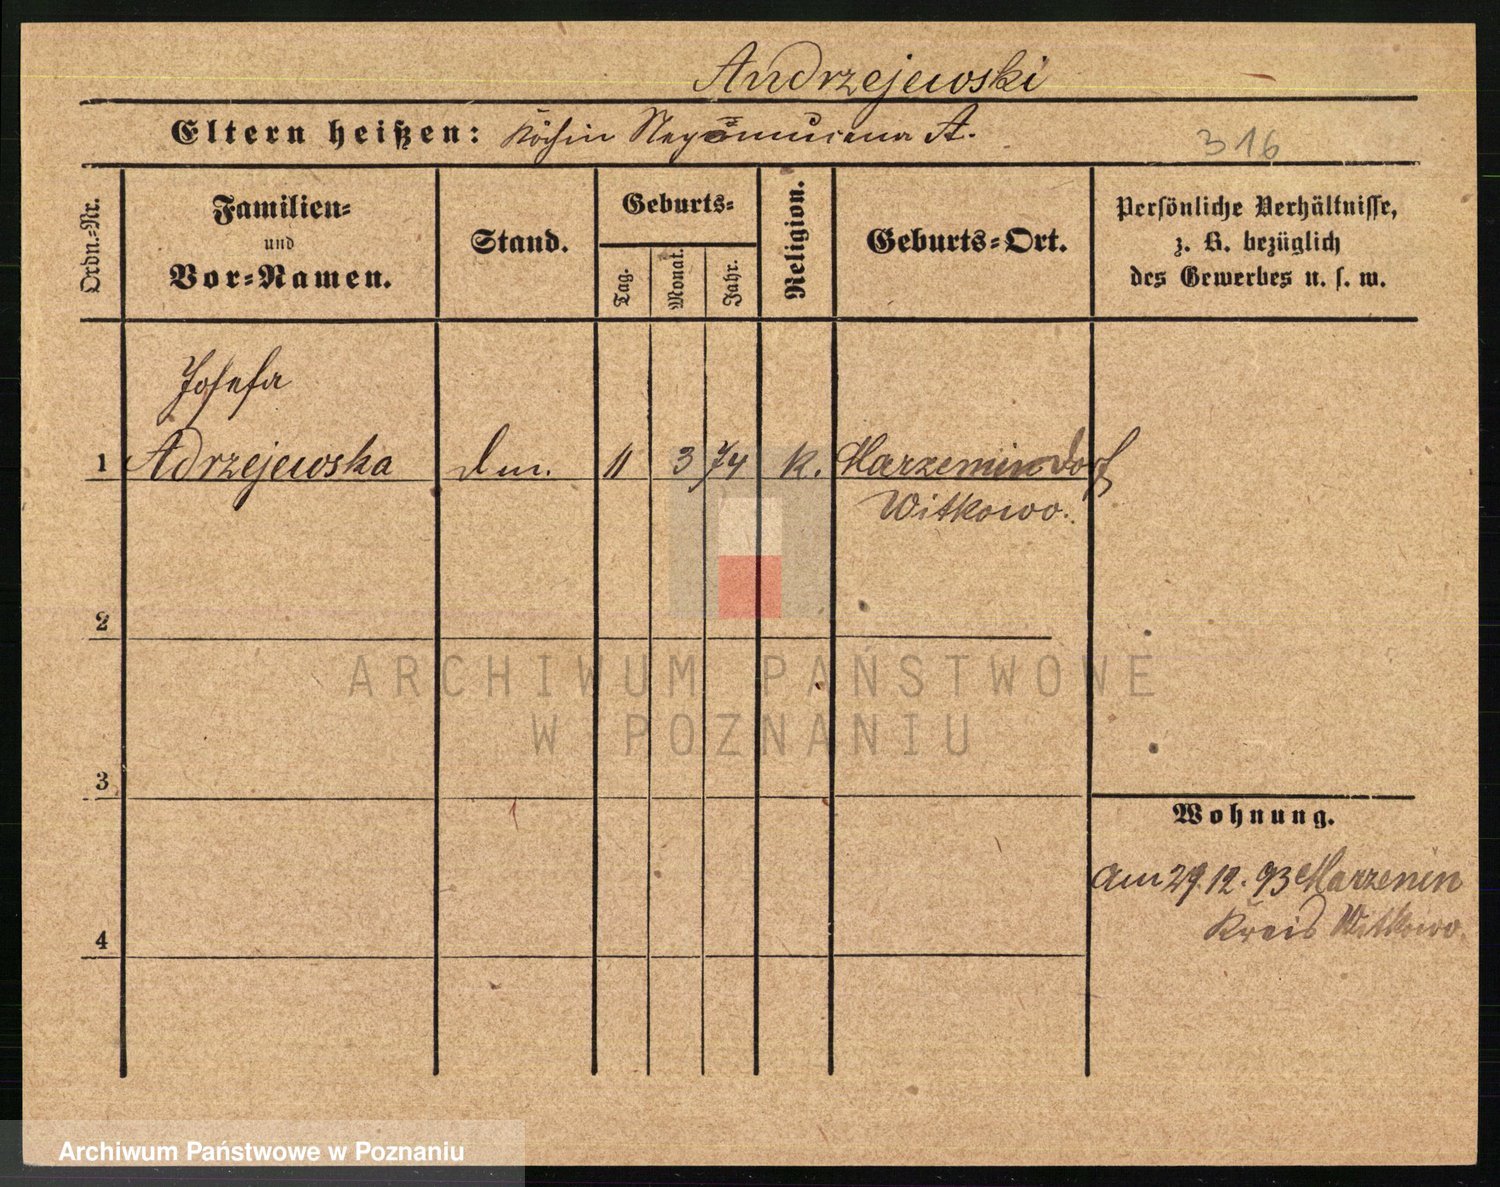 Andrzejewski
Eltern heißen: Köchin Nepomucena A.
316
Ordn.-Nr.
Familien-
und
Vor-Namen.
Stand.
Geburts-
Tag.
Monat.
Jahr.
Religion.
Geburts-Ort.
Persönliche Verhältnisse,
z. B. bezüglich
des Gewerbes u. s. w.
Josefa
1 Adrzejewska 11 3 74 k. Marzenin Dorf
Witkowo.
2
3
4
Wohnung.
Am 29.12.93 Marzenin
Kreis Witkowo.
ARCHIWUM PAŃSTWOWE
W POZNANIU
Archiwum Państwowe w Poznaniu